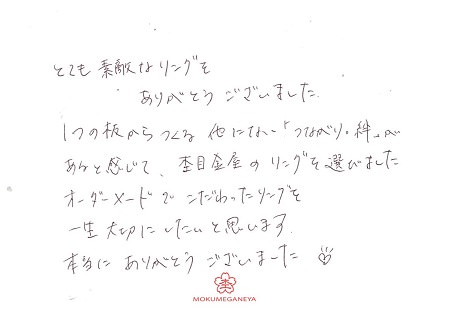 とても素敵なリングを
ありがとうございました.
1つの板からつくる他にない「つながり・絆」が
あると感じて、杢目金屋のリングを選びました
オーダーメードでこだわったリングを
一生大切にしたいと思います.
本当にありがとうございました
杢
MOKUMEGANEYA